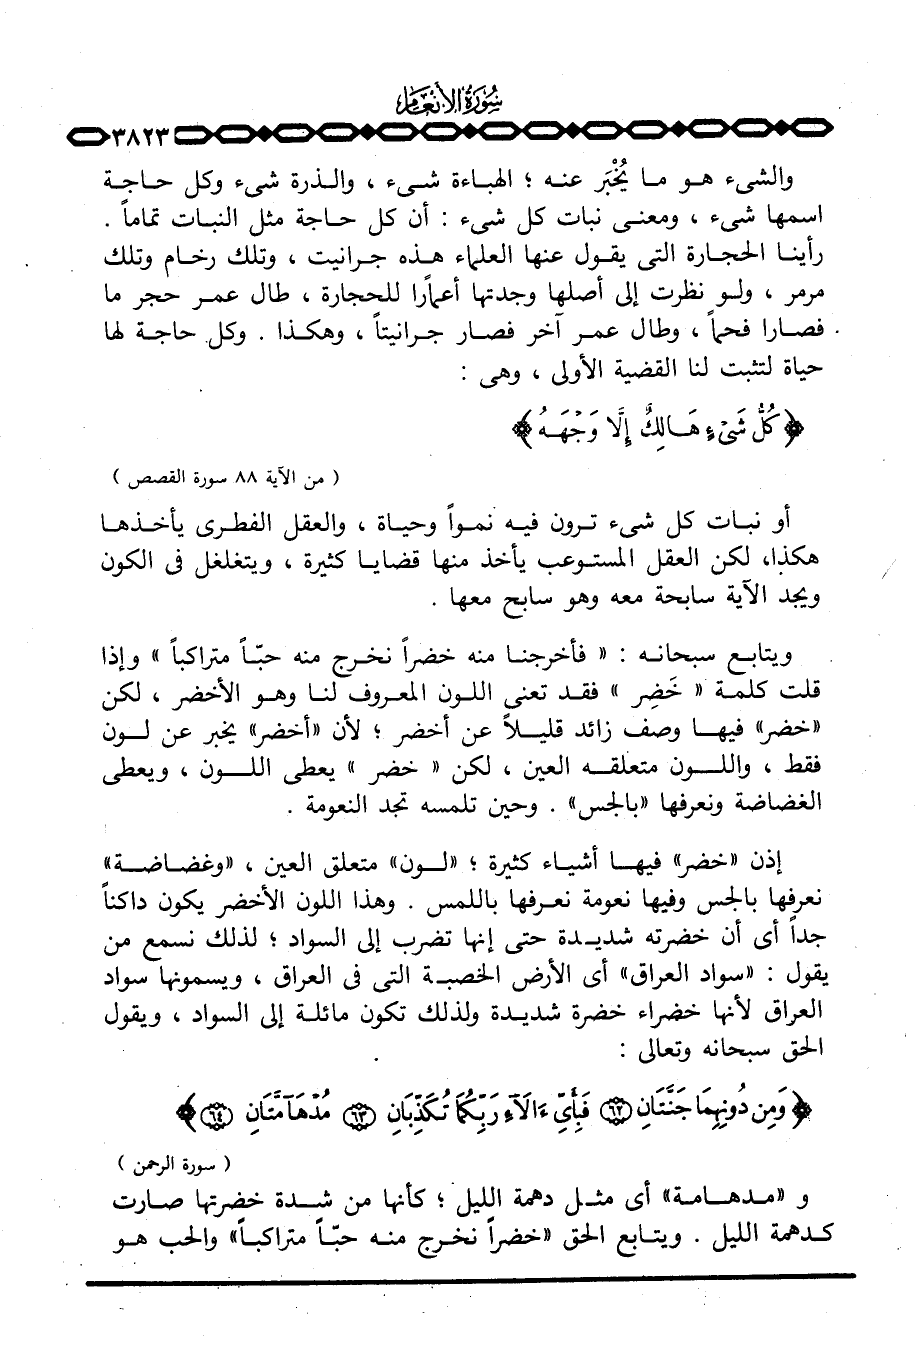 سورة الأنعام
٣٨٢٣
والشىء هو ما يُخْبَر عنه ؛ الهباءة شىء ، والذرة شىء وكل حاجة
اسمها شىء ، ومعنى نبات كل شىء : أن كل حاجة مثل النبات تماماً .
رأينا الحجارة التى يقول عنها العلماء هذه جرانيت ، وتلك رخام وتلك
مرمر ، ولو نظرت إلى أصلها وجدتها أعمارا للحجارة ، طال عمر حجر ما
فصارا فحماً ، وطال عمر آخر فصار جرانيتاً ، وهكذا . وكل حاجة لها
حياة لتثبت لنا القضية الأولى ، وهى :
﴿ كُلُّ شَىْءٍ هَالِكٌ إِلَّا وَجْهَهُ ﴾
( من الآية ٨٨ سورة القصص )
أو نبات كل شىء ترون فيه نمواً وحياة ، والعقل الفطرى يأخذها
هكذا، لكن العقل المستوعب يأخذ منها قضايا كثيرة ، ويتغلغل فى الكون
ويجد الآية سابحة معه وهو سابح معها .
ويتابع سبحانه : « فأخرجنا منه خضراً نخرج منه حبّاً متراكباً » وإذا
قلت كلمة « خَضِر » فقد تعنى اللون المعروف لنا وهو الأخضر ، لكن
«خضر» فيها وصف زائد قليلاً عن أخضر ؛ لأن «أخضر» يخبر عن لون
فقط ، واللون متعلقه العين ، لكن « خضر » يعطى اللون ، ويعطى
الغضاضة ونعرفها «بالجس» . وحين تلمسه تجد النعومة .
إذن «خضر» فيها أشياء كثيرة ؛ «لون» متعلق العين ، «وغضاضة»
نعرفها بالجس وفيها نعومة نعرفها باللمس . وهذا اللون الأخضر يكون داكناً
جداً أى أن خضرته شديدة حتى إنها تضرب إلى السواد ؛ لذلك نسمع من
يقول : «سواد العراق» أى الأرض الخصبة التى فى العراق ، ويسمونها سواد
العراق لأنها خضراء خضرة شديدة ولذلك تكون مائلة إلى السواد ، ويقول
الحق سبحانه وتعالى :
﴿ وَمِن دُونِهِمَا جَنَّتَانِ ٦٢ فَبِأَىِّ ءَالَآءِ رَبِّكُمَا تُكَذِّبَانِ ٦٣ مُدْهَآمَّتَانِ ٦٤ ﴾
( سورة الرحمن )
و «مدهامة» أى مثل دهمة الليل ؛ كأنها من شدة خضرتها صارت
كدهمة الليل . ويتابع الحق «خضراً نخرج منه حبّاً متراكباً» والحب هو